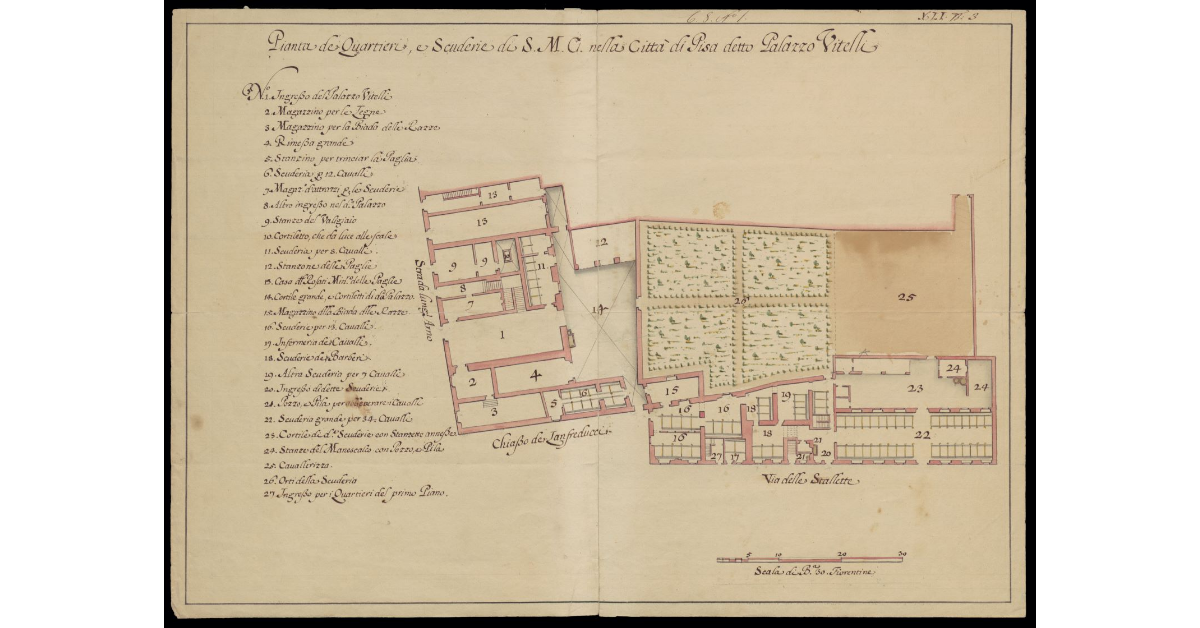 6. S. N.º 1.
Pianta de Quartieri, e Scuderie di S. M. C. nella Città di Pisa detto Palazzo Vitelli
Nº 1. Ingreßo del Palazzo Vitelli
2. Magazzino per le Legne
3. Magazzino per la Biada delle Razze
4. Rimeßa grande
5. Stanzino per trinciar la Paglia
6. Scuderia p. 12. Cavalli
7. Magaz.º d'attrazzi p. le Scuderie
8. Altro ingreßo nel d.º Palazzo
9. Stanze del Valigiaio
10. Cortiletto, che da luce alle scale
11. Scuderia per 8. Cavalli
12. Stanzone delle Paglie
13. Casa Min.º delle Paglie
14. Cortile grande, e Cortiletti di d.º Palazzo
15. Magazzino della Biada delle Razze
16. Scuderie per 13. Cavalli
17. Infermeria de Cavalli
18. Scuderie de Barberi
19. Altra Scuderia per 7 Cavalli
20. Ingreßo di dette Scuderie
21. Pozzo, e Pila per Cavalli
22. Scuderia grande per 34. Cavalli
23. Cortile di d.ª Scuderie con Stanzette anneße
24. Stanze del Manescalco con Pozzo, e Pila
25. Cavallerizza
26. Orti della Scuderia
27. Ingreßo per i Quartieri del primo Piano.
13
13
12
9
9
11
8
7
14
26
25
1
2
4
3
5
6
15
16
16
16
18
19
18
17
17
21
21
20
22
23
24
24
Strada lung'Arno
Chiaßo de Lanfreducci
Via delle Stallette
5 10 20 30
Scala di B.ª 30. Fiorentine